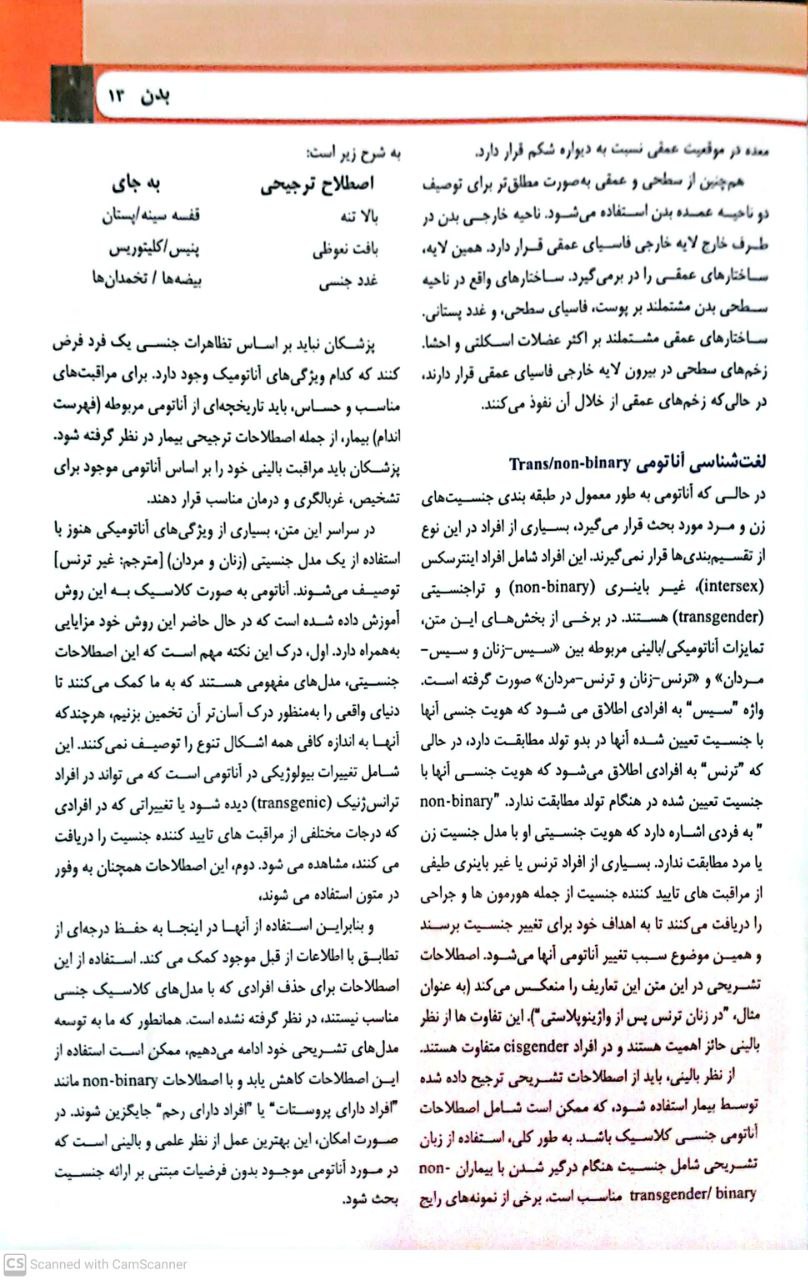 بدن ۱۳
معده در موقعیت عمقی نسبت به دیواره شکم قرار دارد.
هم‌چنین از سطحی و عمقی به‌صورت مطلق‌تر برای توصیف
دو ناحیه عمده بدن استفاده می‌شود. ناحیه خارجی بدن در
طرف خارج لایه خارجی فاسیای عمقی قرار دارد. همین لایه،
ساختارهای عمقی را در برمی‌گیرد. ساختارهای واقع در ناحیه
سطحی بدن مشتملند بر پوست، فاسیای سطحی، و غدد پستانی.
ساختارهای عمقی مشتملند بر اکثر عضلات اسکلتی و احشا.
زخم‌های سطحی در بیرون لایه خارجی فاسیای عمقی قرار دارند،
در حالی‌که زخم‌های عمقی از خلال آن نفوذ می‌کنند.
لغت‌شناسی آناتومی Trans/non-binary
در حالی که آناتومی به طور معمول در طبقه بندی جنسیت‌های
زن و مرد مورد بحث قرار می‌گیرد، بسیاری از افراد در این نوع
از تقسیم‌بندی‌ها قرار نمی‌گیرند. این افراد شامل افراد اینترسکس
(intersex)، غیر باینری (non-binary) و تراجنسیتی
(transgender) هستند. در برخی از بخش‌های این متن،
تمایزات آناتومیکی/بالینی مربوطه بین «سیس-زنان و سیس-
مردان» و «ترنس-زنان و ترنس-مردان» صورت گرفته است.
واژه "سیس" به افرادی اطلاق می شود که هویت جنسی آنها
با جنسیت تعیین شده آنها در بدو تولد مطابقت دارد، در حالی
که "ترنس" به افرادی اطلاق می‌شود که هویت جنسی آنها با
جنسیت تعیین شده در هنگام تولد مطابقت ندارد. "non-binary
" به فردی اشاره دارد که هویت جنسیتی او با مدل جنسیت زن
یا مرد مطابقت ندارد. بسیاری از افراد ترنس یا غیر باینری طیفی
از مراقبت های تایید کننده جنسیت از جمله هورمون ها و جراحی
را دریافت می‌کنند تا به اهداف خود برای تغییر جنسیت برسند
و همین موضوع سبب تغییر آناتومی آنها می‌شود. اصطلاحات
تشریحی در این متن این تعاریف را منعکس می‌کند (به عنوان
مثال، "در زنان ترنس پس از واژینوپلاستی"). این تفاوت ها از نظر
بالینی حائز اهمیت هستند و در افراد cisgender متفاوت هستند.
از نظر بالینی، باید از اصطلاحات تشریحی ترجیح داده شده
توسط بیمار استفاده شود، که ممکن است شامل اصطلاحات
آناتومی جنسی کلاسیک باشد. به طور کلی، استفاده از زبان
تشریحی شامل جنسیت هنگام درگیر شدن با بیماران non-
transgender/ binary مناسب است. برخی از نمونه‌های رایج
به شرح زیر است:
اصطلاح ترجیحی به جای
بالا تنه قفسه سینه/پستان
بافت نعوظی پنیس/کلیتوریس
غدد جنسی بیضه‌ها / تخمدان‌ها
پزشکان نباید بر اساس تظاهرات جنسی یک فرد فرض
کنند که کدام ویژگی‌های آناتومیک وجود دارد. برای مراقبت‌های
مناسب و حساس، باید تاریخچه‌ای از آناتومی مربوطه (فهرست
اندام) بیمار، از جمله اصطلاحات ترجیحی بیمار در نظر گرفته شود.
پزشکان باید مراقبت بالینی خود را بر اساس آناتومی موجود برای
تشخیص، غربالگری و درمان مناسب قرار دهند.
در سراسر این متن، بسیاری از ویژگی‌های آناتومیکی هنوز با
استفاده از یک مدل جنسیتی (زنان و مردان) [مترجم: غیر ترنس]
توصیف می‌شوند. آناتومی به صورت کلاسیک به این روش
آموزش داده شده است که در حال حاضر این روش خود مزایایی
به‌همراه دارد. اول، درک این نکته مهم است که این اصطلاحات
جنسیتی، مدل‌های مفهومی هستند که به ما کمک می‌کنند تا
دنیای واقعی را به‌منظور درک آسان‌تر آن تخمین بزنیم، هرچندکه
آنها به اندازه کافی همه اشکال تنوع را توصیف نمی‌کنند. این
شامل تغییرات بیولوژیکی در آناتومی است که می تواند در افراد
ترانس‌ژنیک (transgenic) دیده شود یا تغییراتی که در افرادی
که درجات مختلفی از مراقبت های تایید کننده جنسیت را دریافت
می کنند، مشاهده می شود. دوم، این اصطلاحات همچنان به وفور
در متون استفاده می شوند،
و بنابراین استفاده از آنها در اینجا به حفظ درجه‌ای از
تطابق با اطلاعات از قبل موجود کمک می کند. استفاده از این
اصطلاحات برای حذف افرادی که با مدل‌های کلاسیک جنسی
مناسب نیستند، در نظر گرفته نشده است. همانطور که ما به توسعه
مدل‌های تشریحی خود ادامه می‌دهیم، ممکن است استفاده از
این اصطلاحات کاهش یابد و با اصطلاحات non-binary مانند
"افراد دارای پروستات" یا "افراد دارای رحم" جایگزین شوند. در
صورت امکان، این بهترین عمل از نظر علمی و بالینی است که
در مورد آناتومی موجود بدون فرضیات مبتنی بر ارائه جنسیت
بحث شود.
CS Scanned with CamScanner